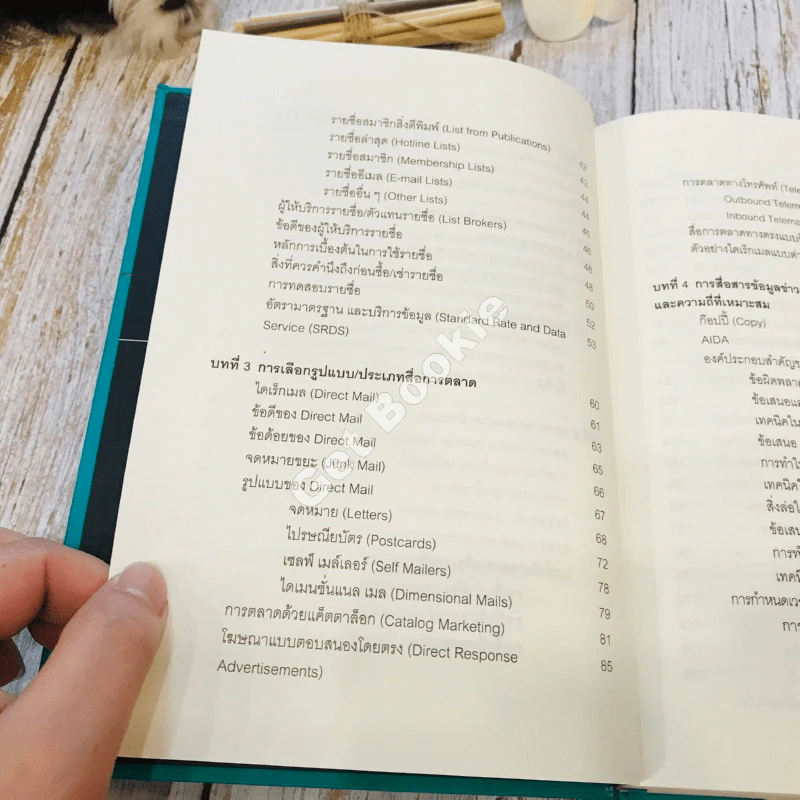 รายชื่อสมาชิกสิ่งตีพิมพ์ (List from Publications) 42
รายชื่อล่าสุด (Hotline Lists) 43
รายชื่อสมาชิก (Membership Lists) 44
รายชื่ออีเมล (E-mail Lists) 44
รายชื่ออื่น ๆ (Other Lists) 45
ผู้ให้บริการรายชื่อ/ตัวแทนรายชื่อ (List Brokers) 46
ข้อดีของผู้ให้บริการรายชื่อ 48
หลักการเบื้องต้นในการใช้รายชื่อ 48
สิ่งที่ควรคำนึงถึงก่อนซื้อ/เช่ารายชื่อ 50
การทดสอบรายชื่อ 52
อัตรามาตรฐาน และบริการข้อมูล (Standard Rate and Data 53
Service (SRDS)
บทที่ 3 การเลือกรูปแบบ/ประเภทสื่อการตลาด
ไดเร็กเมล (Direct Mail) 60
ข้อดีของ Direct Mail 61
ข้อด้อยของ Direct Mail 63
จดหมายขยะ (Junk Mail) 65
รูปแบบของ Direct Mail 66
จดหมาย (Letters) 67
ไปรษณียบัตร (Postcards) 68
เซลฟ์ เมล์เลอร์ (Self Mailers) 72
ไดเมนชั่นแนล เมล (Dimensional Mails) 78
การตลาดด้วยแค็ตตาล็อก (Catalog Marketing) 79
โฆษณาแบบตอบสนองโดยตรง (Direct Response 81
Advertisements) 85
Got Bookie
การตลาดทางโทรศัพท์ (Tele
Outbound Telem
Inbound Telema
สื่อการตลาดทางตรงแบบ
ตัวอย่างไดเร็กเมลแบบต่า
บทที่ 4 การสื่อสารข้อมูลข่าว
และความถี่ที่เหมาะสม
ก๊อปปี้ (Copy)
AIDA
องค์ประกอบสำคัญข
ข้อผิดพลา
ข้อเสนอแล
เทคนิคใน
ข้อเสนอ
การทำใ
เทคนิคใ
สิ่งล่อใ
ข้อเสน
การพั
เทคนิ
การกำหนดเวล
การ